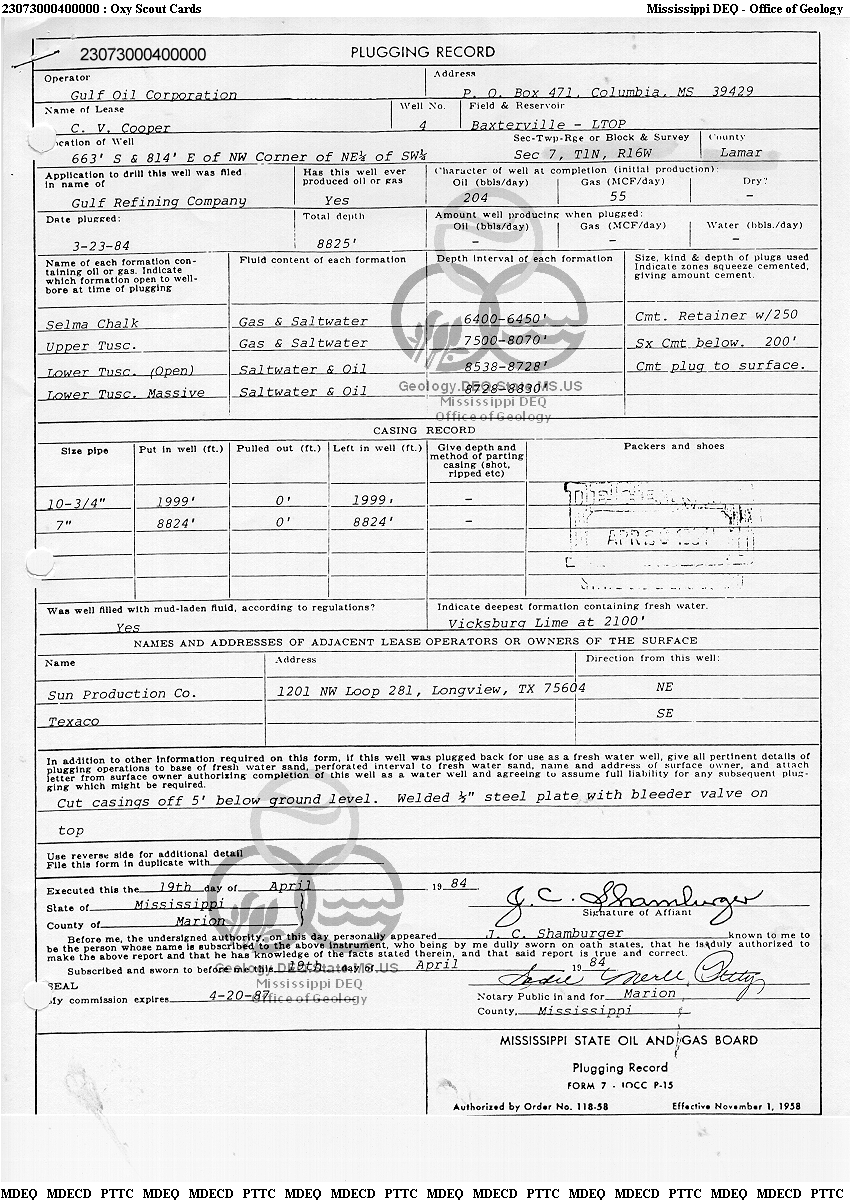 23073000400000 : Oxy Scout Cards Mississippi DEQ - Office of Geology
23073000400000 PLUGGING RECORD
Operator Address
Gulf Oil Corporation P. O. Box 471, Columbia, MS 39429
Name of Lease Well No. Field & Reservoir
C. V. Cooper 4 Baxterville - LTOP
cation of Well Sec-Twp-Rge or Block & Survey County
663' S & 814' E of NW Corner of NE¼ of SW¼ Sec 7, T1N, R16W Lamar
Application to drill this well was filed Has this well ever Character of well at completion (initial production):
in name of produced oil or gas Oil (bbls/day) Gas (MCF/day) Dry?
Gulf Refining Company Yes 204 55 -
Date plugged: Total depth Amount well producing when plugged:
Oil (bbls/day) Gas (MCF/day) Water (bbls./day)
3-23-84 8825' - - -
Name of each formation con- Fluid content of each formation Depth interval of each formation Size, kind & depth of plugs used
taining oil or gas. Indicate Indicate zones squeeze cemented,
which formation open to well- giving amount cement.
bore at time of plugging
Selma Chalk Gas & Saltwater 6400-6450' Cmt. Retainer w/250
Upper Tusc. Gas & Saltwater 7500-8070' Sx Cmt below. 200'
Lower Tusc. (Open) Saltwater & Oil 8538-8728' Cmt plug to surface.
Lower Tusc. Massive Saltwater & Oil 8728-8830'
Geology.DEQ.State.MS.US
Mississippi DEQ
Office of Geology
CASING RECORD
Size pipe Put in well (ft.) Pulled out (ft.) Left in well (ft.) Give depth and Packers and shoes
method of parting
casing (shot,
ripped etc)
10-3/4" 1999' 0' 1999' -
7" 8824' 0' 8824' -
Was well filled with mud-laden fluid, according to regulations? Indicate deepest formation containing fresh water.
Yes Vicksburg Lime at 2100'
NAMES AND ADDRESSES OF ADJACENT LEASE OPERATORS OR OWNERS OF THE SURFACE
Name Address Direction from this well:
Sun Production Co. 1201 NW Loop 281, Longview, TX 75604 NE
Texaco SE
In addition to other information required on this form, if this well was plugged back for use as a fresh water well, give all pertinent details of
plugging operations to base of fresh water sand, perforated interval to fresh water sand, name and address of surface owner, and attach
letter from surface owner authorizing completion of this well as a water well and agreeing to assume full liability for any subsequent plug-
ging which might be required.
Cut casings off 5' below ground level. Welded ½" steel plate with bleeder valve on
top
Use reverse side for additional detail
File this form in duplicate with
Executed this the 19th day of April 19 84
State of Mississippi J. C. Shamburger
Signature of Affiant
County of Marion
Before me, the undersigned authority, on this day personally appeared J. C. Shamburger known to me to
be the person whose name is subscribed to the above instrument, who being by me dully sworn on oath states, that he is duly authorized to
make the above report and that he has knowledge of the facts stated therein, and that said report is true and correct.
Subscribed and sworn to before me this 19th day of April 19 84
Geology.DEQ.State.MS.US
SEAL Mississippi DEQ
My commission expires 4-20-87 Notary Public in and for Marion
Office of Geology
County, Mississippi
MISSISSIPPI STATE OIL AND GAS BOARD
Plugging Record
FORM 7 - IOCC P-15
Authorized by Order No. 118-58 Effective November 1, 1958
MDEQ MDECD PTTC MDEQ MDECD PTTC MDEQ MDECD PTTC MDEQ MDECD PTTC MDEQ MDECD PTTC MDEQ MDECD PTTC